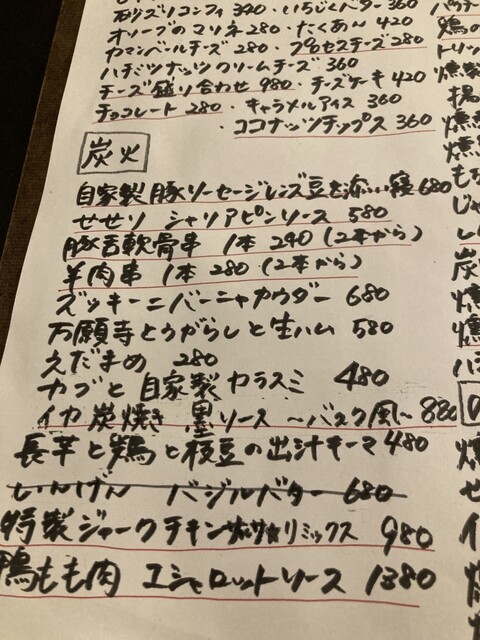 砂ズリコンフィ 390・いちじくバター 360
オリーブのマリネ 280・たくあん 420
カマンベールチーズ 280・プロセスチーズ 280
ハチミツナッツクリームチーズ 360
チーズ盛り合わせ 980・チーズケーキ 420
チョコレート 280・キャラメルアイス 360
・ココナッツチップス 360
炭火
自家製豚ソーセージレンズ豆を添い寝 680
せせり シャリアピンソース 580
豚舌軟骨串 1本 290 (2本から)
羊肉串 1本 280 (2本から)
ズッキーニバーニャカウダー 680
万願寺とうがらしと生ハム 580
えだまめ 280
カブと自家製カラスミ 480
イカ炭焼き 墨ソース ～バスク風～ 880
長芋と鶏と枝豆の出汁キーマ 480
いんげん バジルバター 680
特製ジャークチキン リミックス 980
鴨もも肉 エシャロットソース 1380